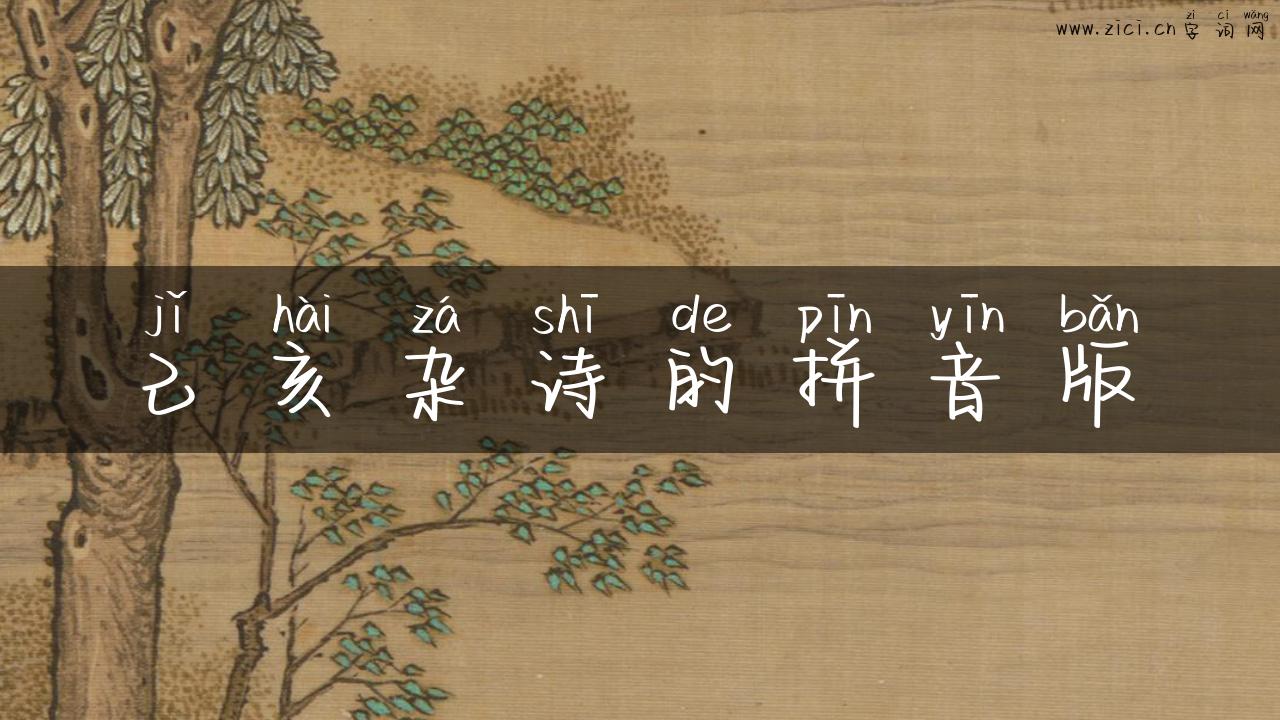 www.zici.cn zì cí wǎng
字词网
jǐ hài zá shī de pīn yīn bǎn
己亥杂诗的拼音版